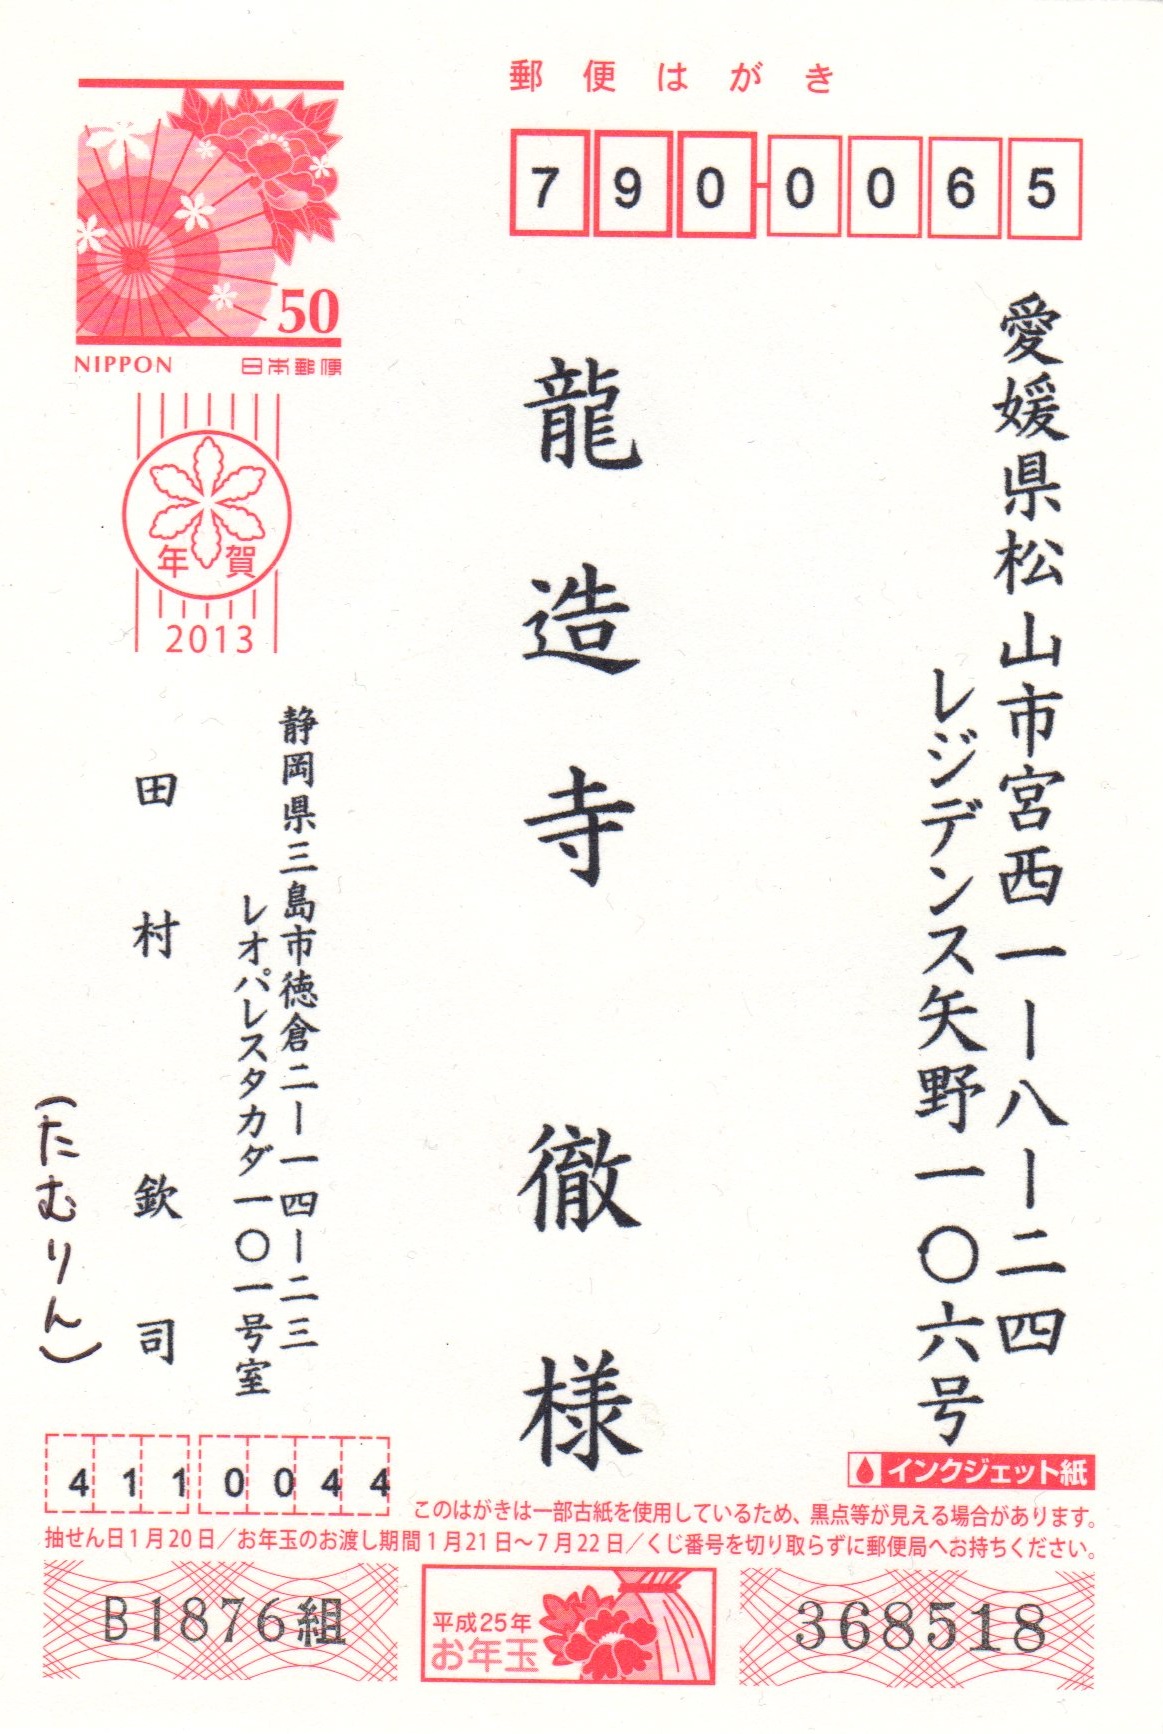 郵便はがき
790-0065
愛媛県松山市宮西一ー八ー二四
レジデンス矢野一〇六号
龍造寺 徹様
50
NIPPON 日本郵便
年賀
2013
静岡県三島市徳倉二ー一四ー二三
レオパレスタカダ一〇一号室
田村 欽司
(たむりん)
4110044
インクジェット紙
このはがきは一部古紙を使用しているため、黒点等が見える場合があります。
抽せん日1月20日/お年玉のお渡し期間1月21日~7月22日/くじ番号を切り取らずに郵便局へお持ちください。
B1876組
平成25年
お年玉
368518